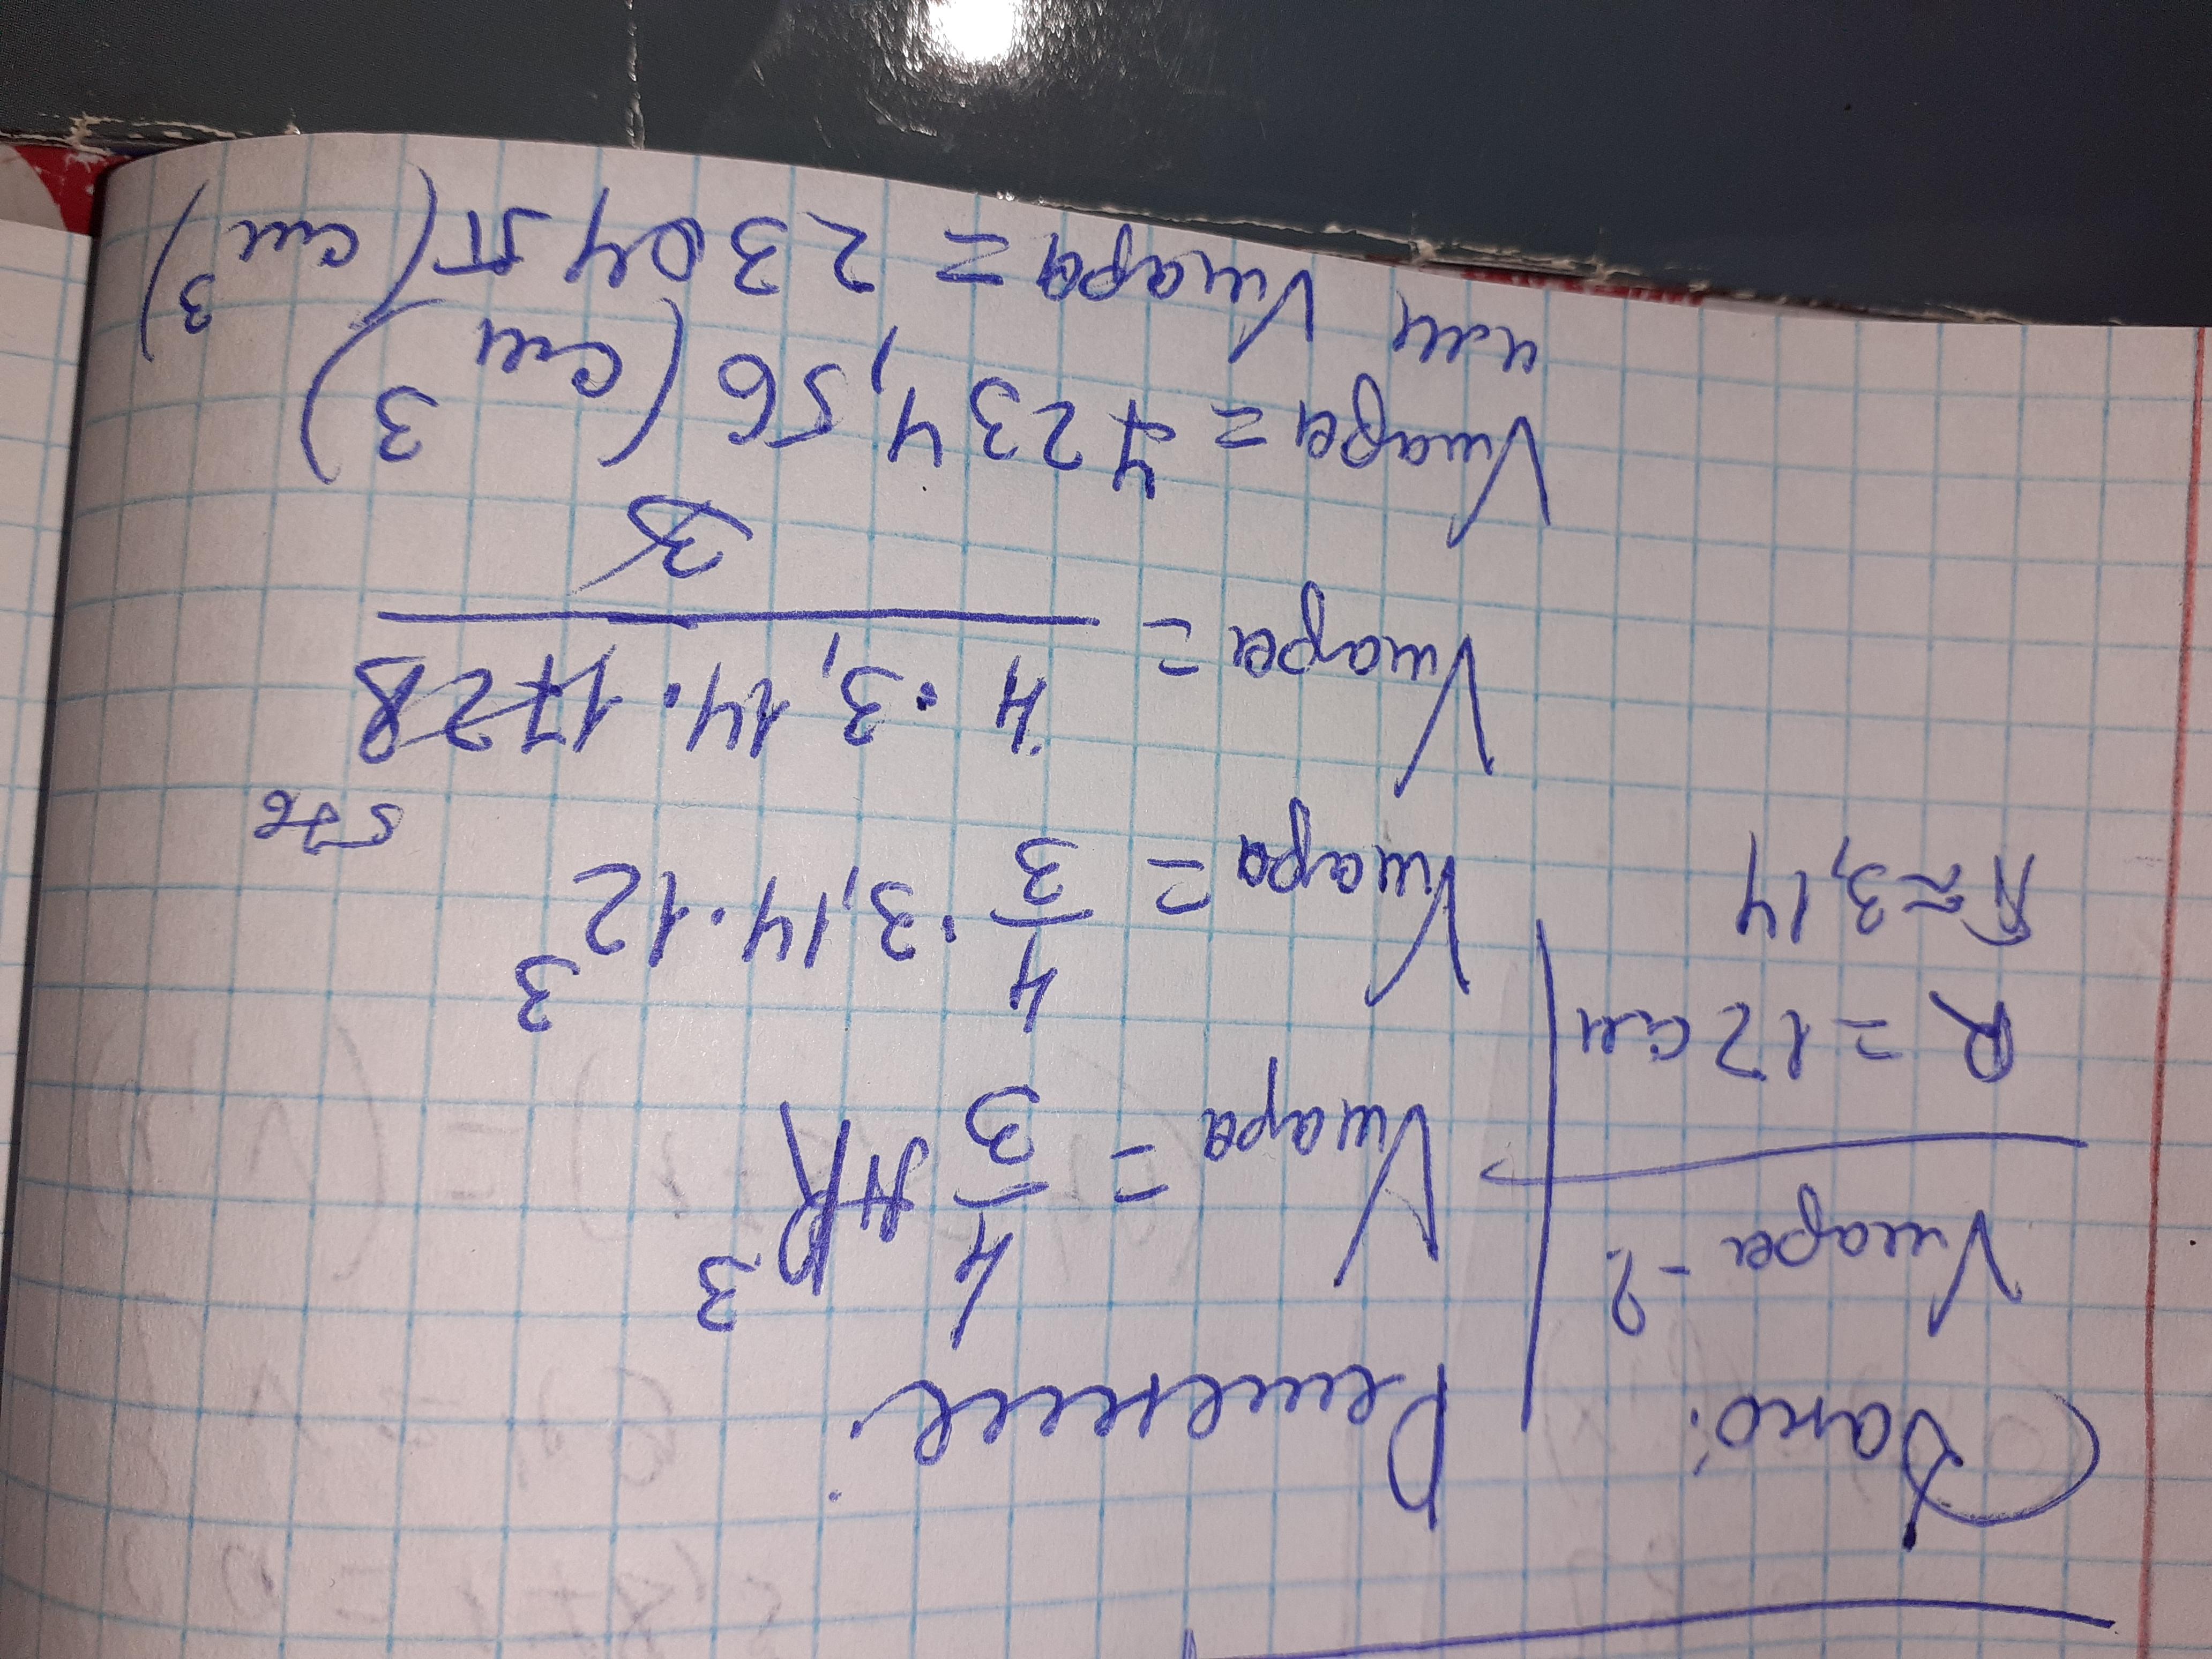 Дано:
Vшара -?
R = 12 см
π ≈ 3,14
Решение
Vшара = 4/3 πR³
Vшара = 4/3 · 3,14 · 12³
576
Vшара = 4 · 3,14 · 1728 / 3
Vшара = 7234,56 (см³)
или Vшара = 2304π (см³)